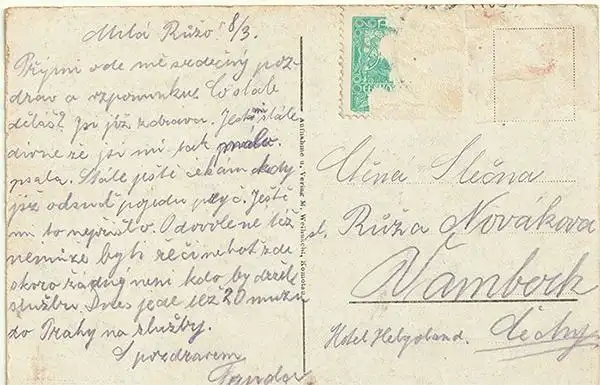 Milá Růžo! 8/3.
Přijmi ode mě srdečný poz-
drav a vzpomínku Co stále
děláš? Jsi již zdravá. Jest mi stále
divné že jsi mi tak málo
psala. Stále ještě čekám kdy
již odsud pojedu pryč. Ještě
mi to nepřišlo. O dovolené též
nemůže býti řeči neboť zde
skoro žádný není kdo by držel
službu. Dnes jede též 20 mužů
do Prahy na služby.
S pozdravem
Aufnahme u. Verlag M. Komotau
Ctěná Slečna
sl. Růža Nováková
Vamberk
Hotel Helgoland. Čechy